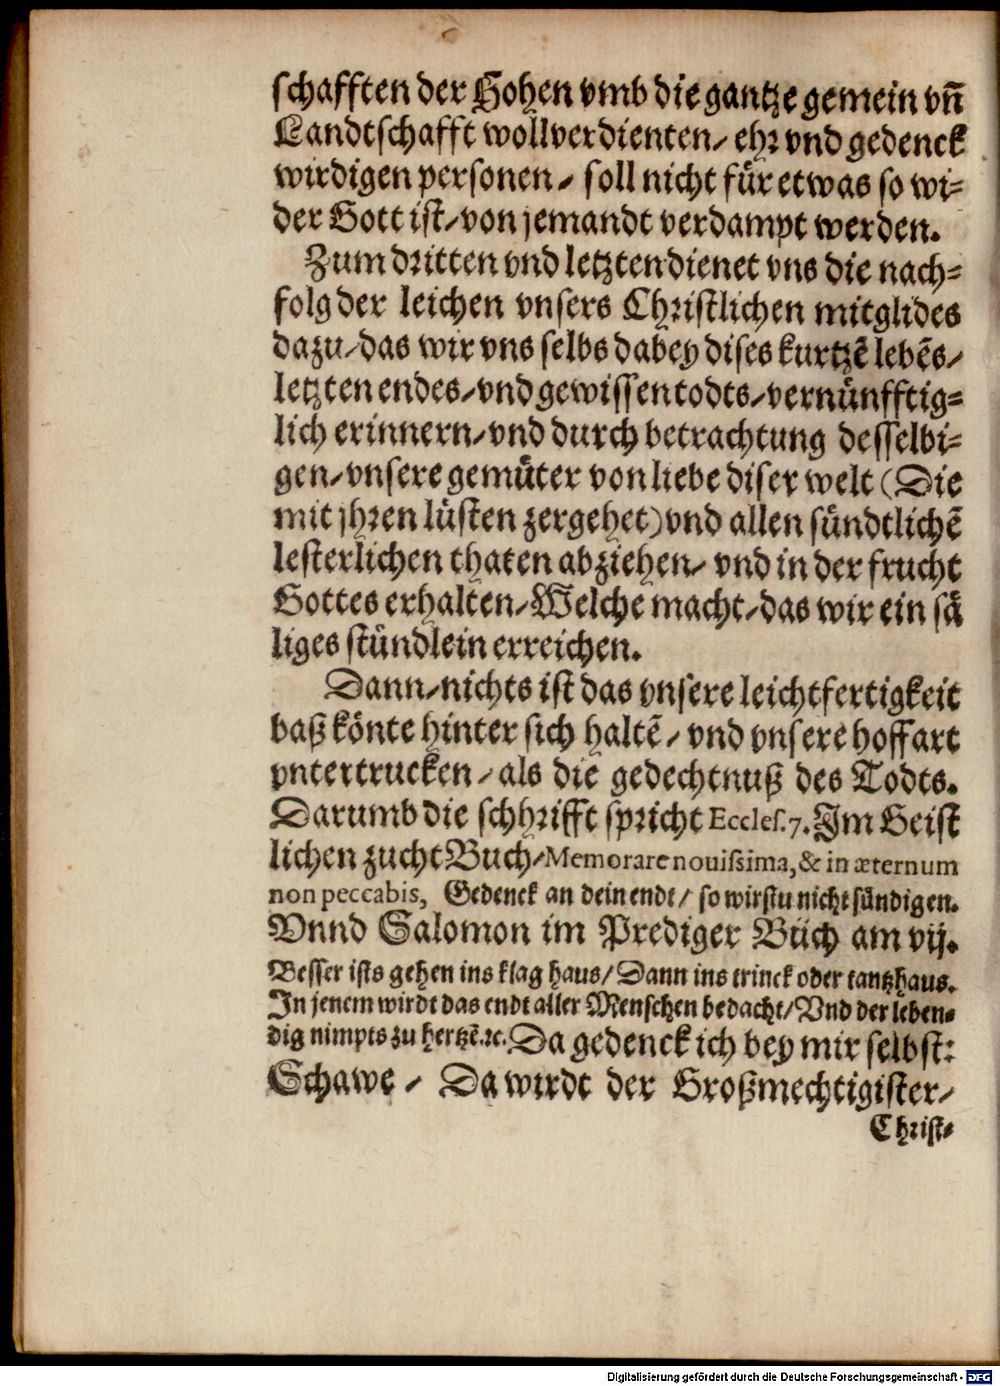 schafften der Hohen vmb die gantze gemein vñ
Landtschafft wollverdienten/ ehr vnd gedenck
wirdigen personen/ soll nicht für etwas so wi=
der Gott ist/ von jemandt verdampt werden.
Zum dritten vnd letzten dienet vns die nach=
folg der leichen vnsers Christlichen mitglides
dazu/ das wir vns selbs dabey dises kurtzē lebēs/
letzten endes/ vnd gewissen todts/ vernünfftig=
lich erinnern/ vnd durch betrachtung desselbi=
gen/ vnsere gemüter von liebe diser welt (Die
mit jhren lüsten zergehet) vnd allen sündtlichē
lesterlichen thaten abziehen/ vnd in der frucht
Gottes erhalten/ Welche macht/ das wir ein sä
liges stündlein erreichen.
Dann/ nichts ist das vnsere leichtfertigkeit
baß könte hinter sich haltē/ vnd vnsere hoffart
vntertrucken/ als die gedechtnuß des Todts.
Darumb die schhrifft spricht Eccles. 7. Im Geist
lichen zucht Buch/ Memorare nouißima, & in æternum
non peccabis, Gedenck an dein endt/ so wirstu nicht sündigen.
Vnnd Salomon im Prediger Büch am vij.
Besser ists gehen ins klag haus/ Dann ins trinck oder tantzhaus.
In jenem wirdt das endt aller Menschen bedacht/ Vnd der leben=
dig nimpts zu hertzē.ꝛc. Da gedenck ich bey mir selbst:
Schawe/ Da wirdt der Großmechtigister/
Christ=
Digitalisierung gefördert durch die Deutsche Forschungsgemeinschaft - DFG